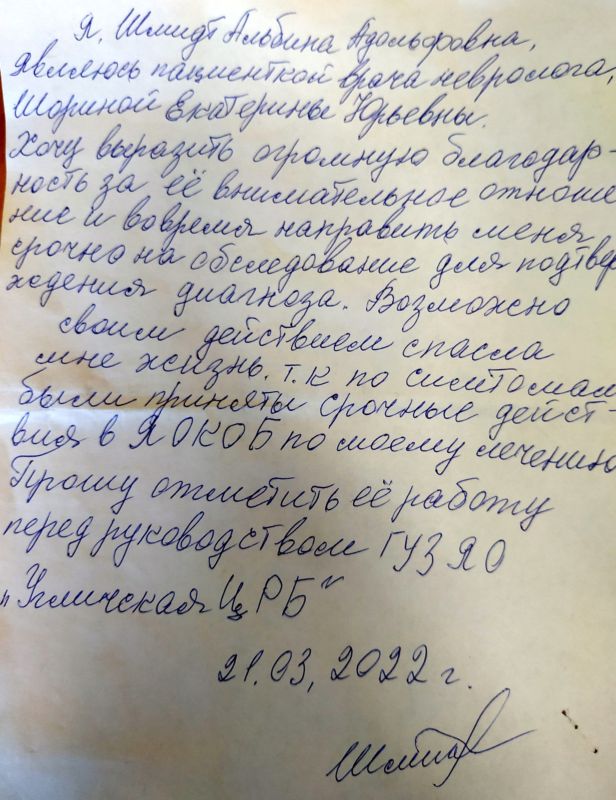 Я, Шмидт Альбина Адольфовна,
являюсь пациенткой врача невролога,
Шориной Екатерины Юрьевны.
Хочу выразить огромную благодар-
ность за её внимательное отноше
ние и вовремя направить меня
срочно на обследование для подтвер
ждения диагноза. Возможно
своим действием спасла
мне жизнь. т.к по симтомам
были приняты срочные дейст-
вия в ЯОКОБ по моему лечению
Прошу отметить её работу
перед руководством ГУЗ ЯО
"Угличская ЦРБ"
21.03, 2022 г.